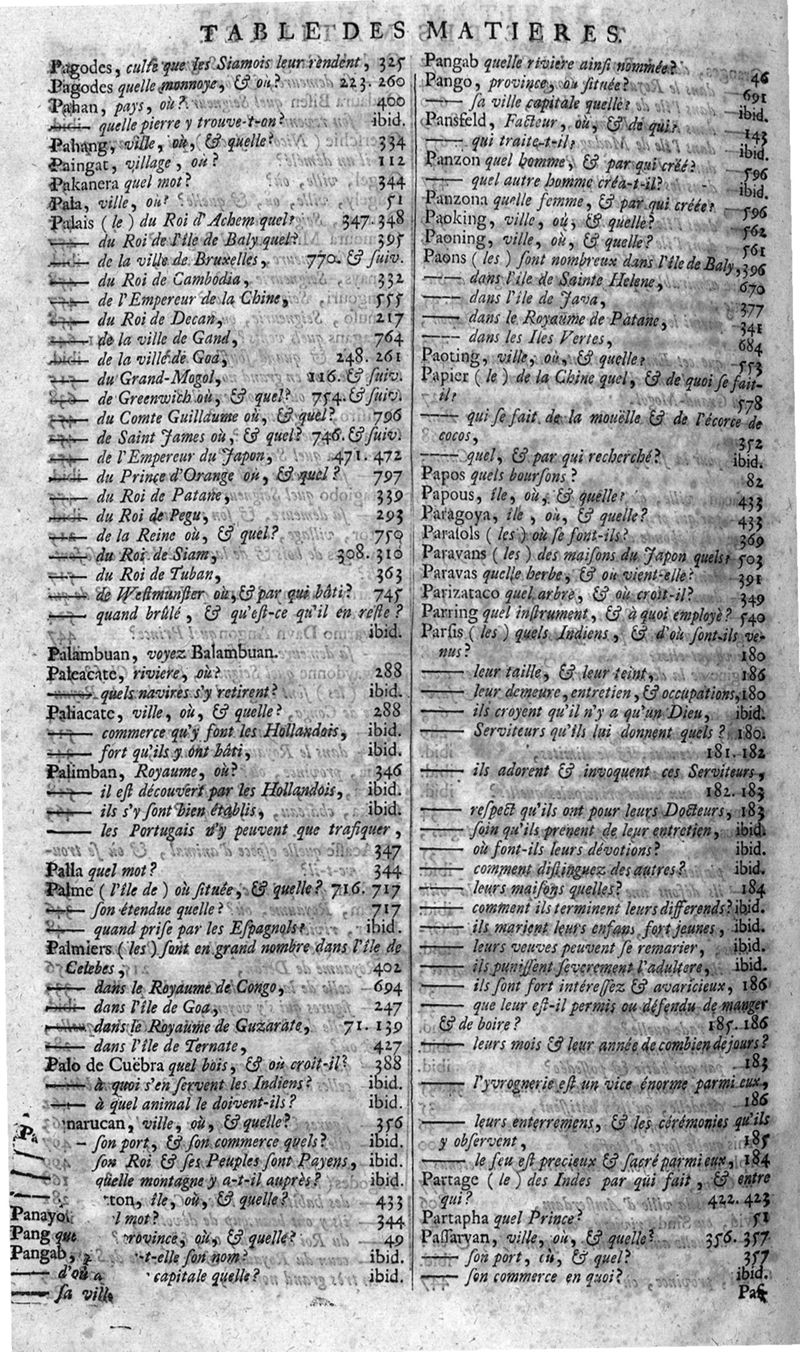 TABLE DES MATIERES.
Pagodes, culte que les Siamois leur rendent, 325
Pagodes quelle monnoye, & où? 223. 260
Pahan, pays, où? 400
—— quelle pierre y trouve-t-on? ibid.
Pahang, ville, où, & quelle? 334
Paingat, village, où? 112
Pakanera quel mot? 344
Pala, ville, où? 51
Palais (le) du Roi d'Achem quel? 347. 348
—— du Roi de l'île de Baly quel? 395
—— de la ville de Bruxelles, 770. & suiv.
—— du Roi de Cambodia, 332
—— de l'Empereur de la Chine, 555
—— du Roi de Decan, 217
—— de la ville de Gand, 764
—— de la ville de Goa, 248. 261
—— du Grand-Mogol, 116. & suiv.
—— de Greenwich où, & quel? 754. & suiv.
—— du Comte Guilldume où, & quel? 796
—— de Saint James où, & quel? 746. & suiv.
—— de l'Empereur du Japon, 471. 472
—— du Prince d'Orange où, & quel? 797
—— du Roi de Patane, 339
—— du Roi de Pegu, 293
—— de la Reine où, & quel? 750
—— du Roi de Siam, 308. 310
—— du Roi de Tuban, 363
—— de Westmunster où, & par qui bâti? 745
—— quand brûlé, & qu'est-ce qu'il en reste?
ibid.
Palambuan, voyez Balambuan.
Paleacate, riviere, où? 288
—— quels navires s'y retirent? ibid.
Paliacate, ville, où, & quelle? 288
—— commerce qu'y font les Hollandois, ibid.
—— fort qu'ils y ont bâti, ibid.
Palimban, Royaume, où? 346
—— il est découvert par les Hollandois, ibid.
—— ils s'y sont bien établis, ibid.
—— les Portugais n'y peuvent que trafiquer,
347
Palla quel mot? 344
Palme (l'île de) où située, & quelle? 716. 717
—— son étendue quelle? 717
—— quand prise par les Espagnols? ibid.
Palmiers (les) sont en grand nombre dans l'île de
Celebes, 402
—— dans le Royaume de Congo, 694
—— dans l'île de Goa, 247
—— dans le Royaume de Guzarate, 71. 139
—— dans l'île de Ternate, 427
Palo de Cuëbra quel bois, & où croit-il? 388
—— à quoi s'en servent les Indiens? ibid.
—— à quel animal le doivent-ils? ibid.
Pa narucan, ville, où, & quelle? 356
– son port, & son commerce quels? ibid.
son Roi & ses Peuples sont Payens, ibid.
quelle montagne y a-t-il auprès? ibid.
ton, île, où, & quelle? 433
Panayo l mot? 344
Pang que rovince, où, & quelle? 49
Pangab, -t-elle son nom? ibid.
—— d'où a capitale quelle? ibid.
—— sa ville
Pangab quelle riviere ainsi nommée? 46
Pango, province, où située? 691
—— sa ville capitale quelle? ibid.
Pansfeld, Facteur, où, & de qui? 143
—— qui traite-t-il? ibid.
Panzon quel homme, & par qui créé? 596
—— quel autre homme créa-t-il? ibid.
Panzona quelle femme, & par qui créée? 596
Paoking, ville, où, & quelle? 562
Paoning, ville, où, & quelle? 561
Paons (les) sont nombreux dans l'île de Baly, 396
—— dans l'île de Sainte Helene, 670
—— dans l'île de Java, 377
—— dans le Royaume de Patane, 341
—— dans les Iles Vertes, 684
Paoting, ville, où, & quelle? 553
Papier (le) de la Chine quel, & de quoi se fait-
il? 578
—— qui se fait de la mouëlle & de l'écorce de
cocos, 352
—— quel, & par qui recherché? ibid.
Papos quels boursons? 82
Papous, île, où, & quelle? 433
Paragoya, île, où, & quelle? 433
Parasols (les) où se font-ils? 369
Paravans (les) des maisons du Japon quels? 503
Paravas quelle herbe, & où vient-elle? 391
Parizataco quel arbre, & où croit-il? 349
Parring quel instrument, & à quoi employé? 540
Parsis (les) quels Indiens, & d'où sont-ils ve-
nus? 180
—— leur taille, & leur teint, 186
—— leur demeure, entretien, & occupations, 180
—— ils croyent qu'il n'y a qu'un Dieu, ibid.
—— Serviteurs qu'ils lui donnent quels? 180.
181. 182
—— ils adorent & invoquent ces Serviteurs,
182. 183
—— respect qu'ils ont pour leurs Docteurs, 183
—— soin qu'ils prenent de leur entretien, ibid.
—— où font-ils leurs dévotions? ibid.
—— comment distinguez des autres? ibid.
—— leurs maisons quelles? 184
—— comment ils terminent leurs differends? ibid.
—— ils marient leurs enfans fort jeunes, ibid.
—— leurs veuves peuvent se remarier, ibid.
—— ils punissent severement l'adultere, ibid.
—— ils sont fort intéressez & avaricieux, 186
—— que leur est-il permis ou défendu de manger
& de boire? 185. 186
—— leurs mois & leur année de combien de jours?
183
—— l'yvrognerie est un vice énorme parmi eux,
186
—— leurs enterremens, & les cérémonies qu'ils
y observent, 185
—— le feu est precieux & sacré parmi eux, 184
Partage (le) des Indes par qui fait, & entre
qui? 422. 423
Partapha quel Prince? 51
Passaryan, ville, où, & quelle? 356. 357
—— son port, où, & quel? 357
—— son commerce en quoi? ibid.
Pas-